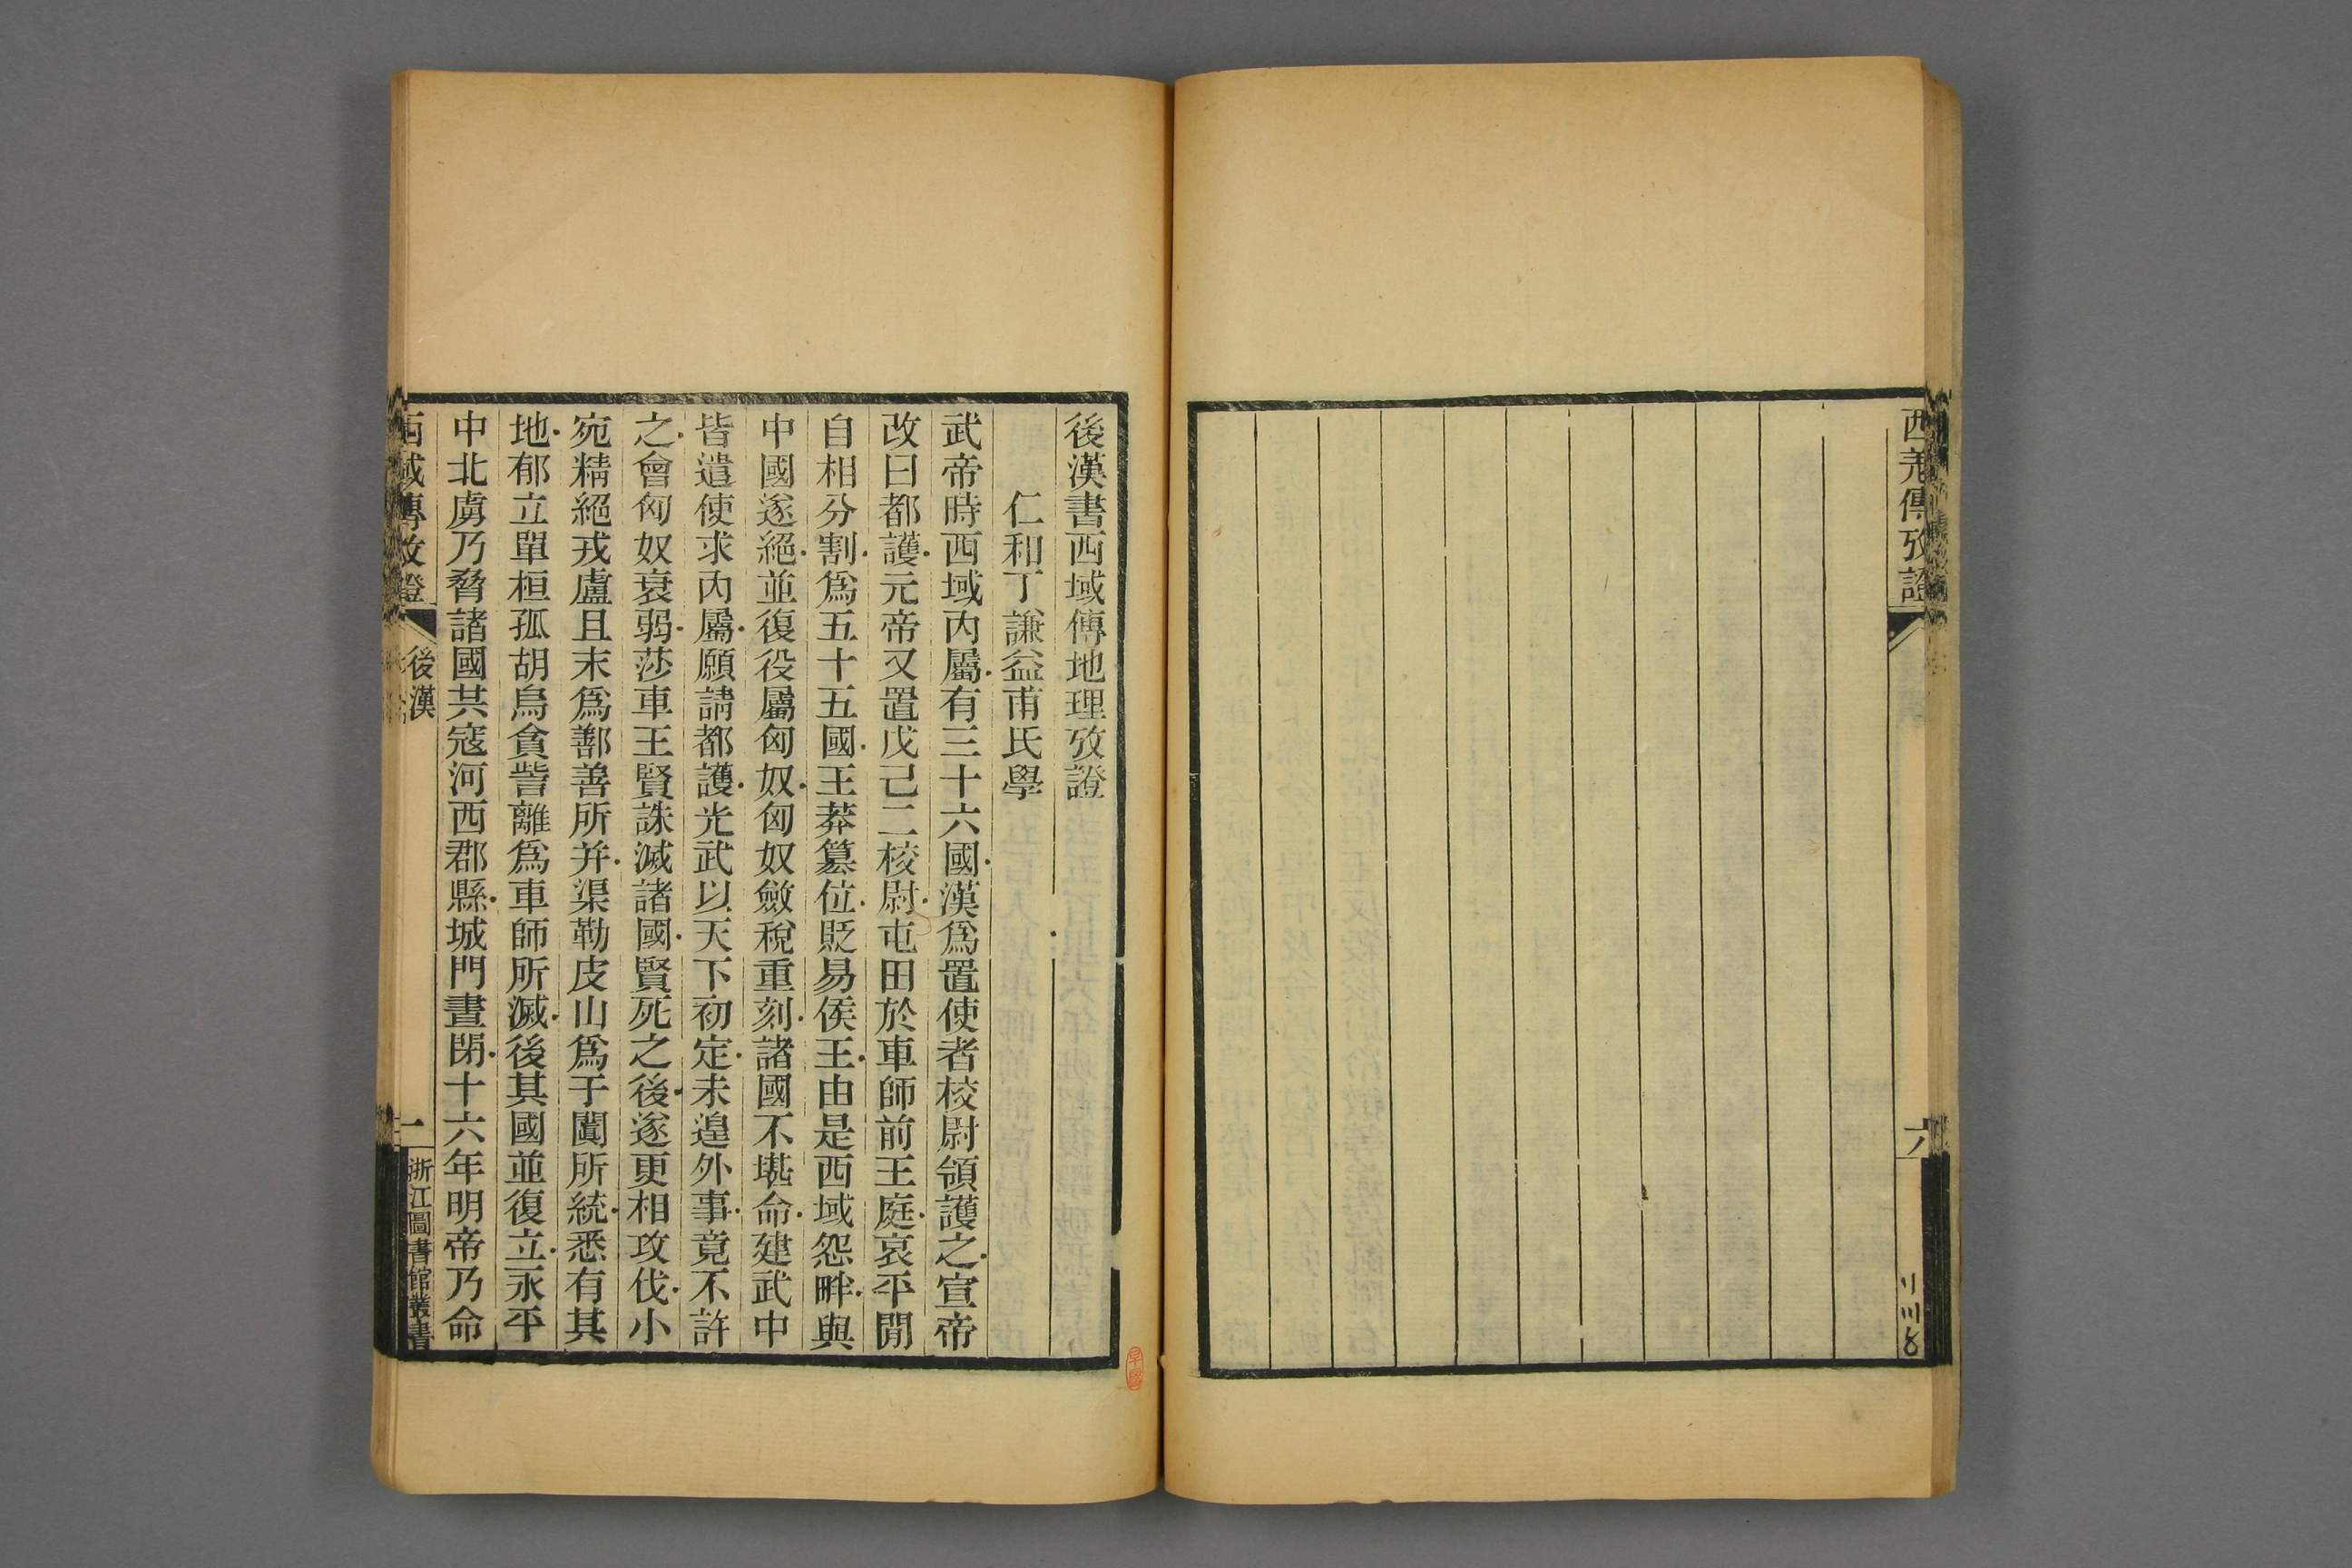 西羌傳攷證
六
後漢書西域傳地理攷證
仁和丁謙益甫氏學
武帝時西域内屬有三十六國漢爲置使者校尉領護之宣帝
改曰都護元帝又置戊己二校尉屯田於車師前王庭哀平閒
自相分割爲五十五國王莽簒位貶易侯王由是西域怨畔與
中國遂絕並復役屬匈奴匈奴斂稅重刻諸國不堪命建武中
皆遣使求内屬願請都護光武以天下初定未遑外事竟不許
之會匈奴衰弱莎車王賢誅滅諸國賢死之後遂更相攻伐小
宛精絕戎盧且末爲鄯善所并渠勒皮山爲于闐所統悉有其
地郁立單桓孤胡烏貪訾離爲車師所滅後其國並復立永平
中北虜乃脅諸國共寇河西郡縣城門晝閉十六年明帝乃命
西域傳攷證
後漢
一
浙江圖書館叢書